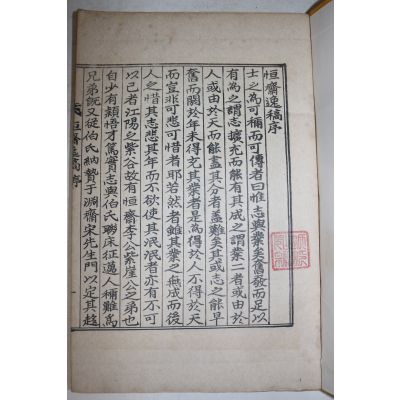 恒齋逸稿序
士之爲可稱而可傳者曰惟志與業矣奮發而足以
有爲之謂志擴充而能有其成之謂業二者或由於
人或由於天而能盡其分者盖難矣其或志之能早
奮而關於年未得充其業者是爲得於人不得於天
而豈非可悲可惜者耶若然者雖其業之無成而後
人之惜其志悲其年而不欲使其泯泯者亦有不可
以已者江陽之紫谷故有恒齋李公紫崖公之弟也
自少有穎悟才篤實志與伯氏聯床征邁人稱難爲
兄弟旣又從伯氏納贄于淵齋宋先生門以定其趍
恒齋逸稿 序 一